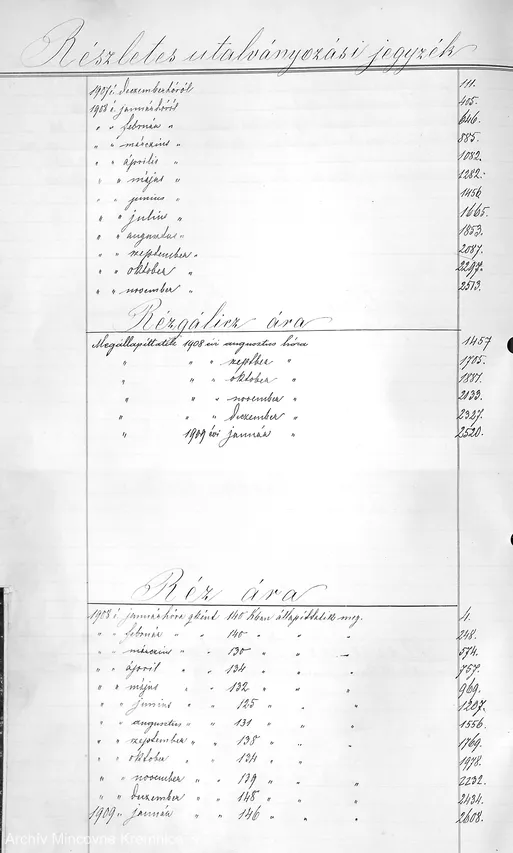 Részletes utalványozási jegyzék
1907 é. deczemberhóról 111.
1908 é. januárhóról 405.
" " február " 646.
" " márczius " 885.
" " április " 1082.
" " május " 1282.
" " junius " 1456
" " julius " 1665.
" " augusztus " 1853.
" " szeptember " 2087.
" " oktober " 2297.
" " november " 2513.
Rézgálicz ára
Megállapittatik 1908 évi augusztus hóra 1457
" " " szeptber " 1705.
" " " oktober " 1887.
" " " november " 2133.
" " " deczember " 2327.
" 1909 évi január " 2520.
Réz ára
1908 é. januárhóra qként 140 K ban állapittatik meg. 4.
" " február " " 140 " " " 248.
" " márczius " " 130 " " 574.
" " április " " 134 " " " 757.
" " május " " 132 " " " 969.
" " junius " " 125 " " " 1207.
" " augusztus " " 131 " " " 1556.
" " szeptember " " 138 " " " 1769.
" " oktober " " 134 " " " 1978.
" " november " " 139 " " " 2232.
" " deczember " " 148 " " " 2434.
1909 " január " " 146 " " " 2608.
Archív Mincovne Kremnica